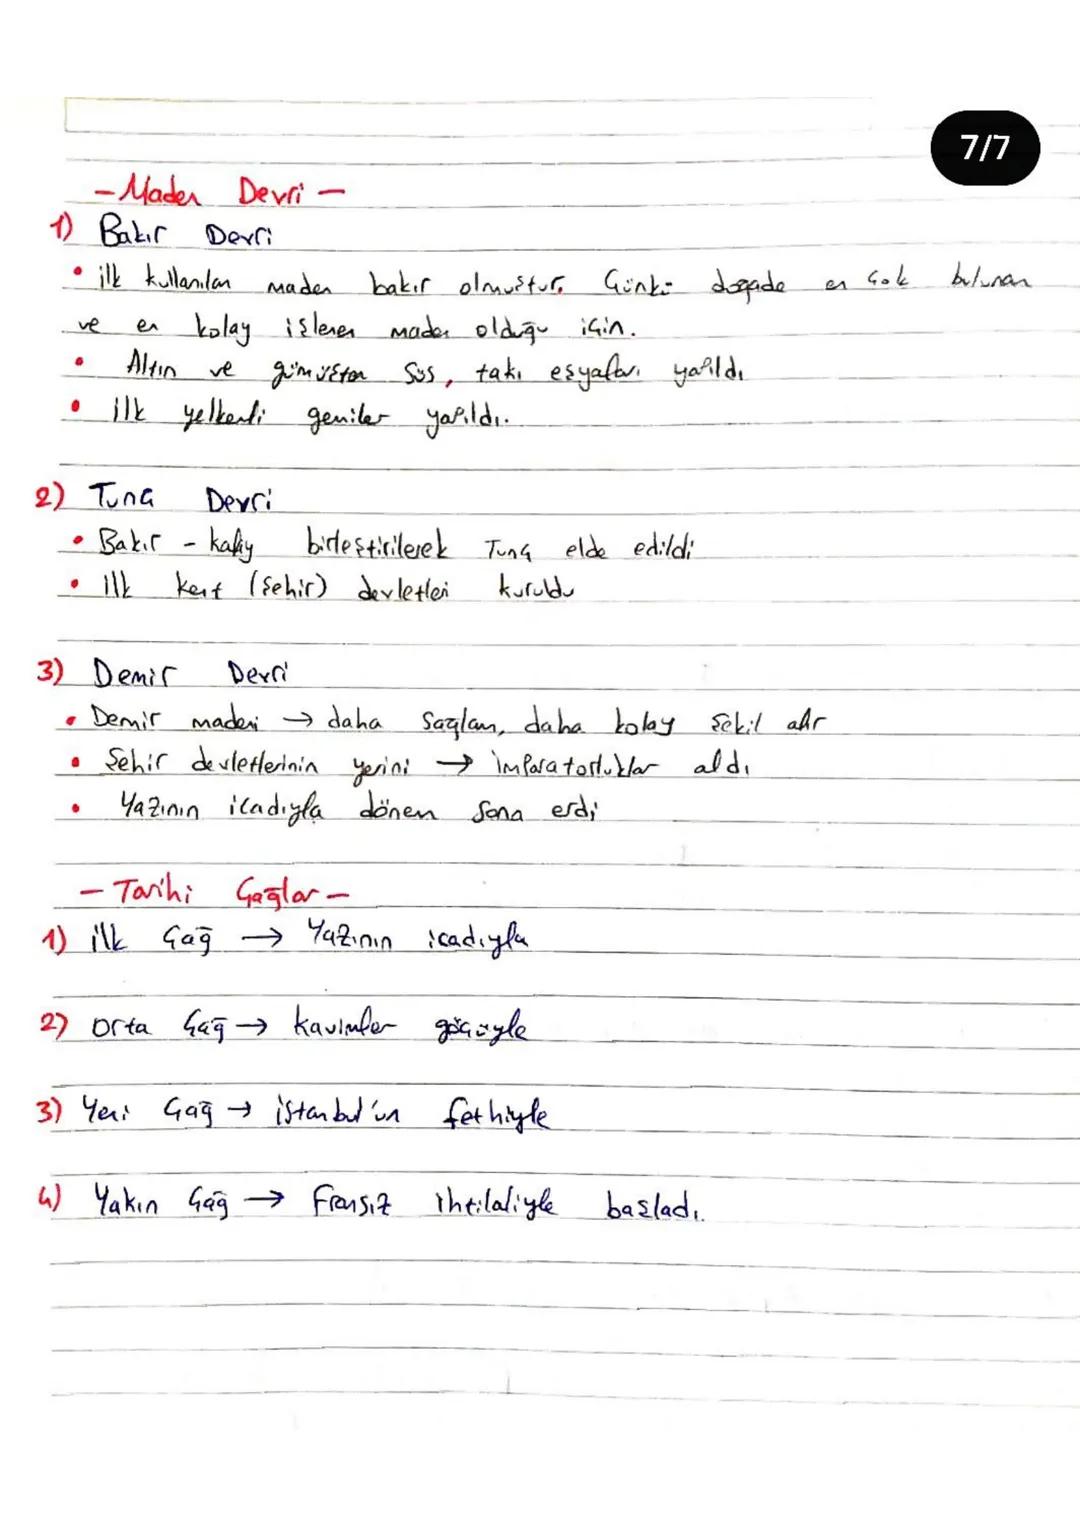 7/7
- Maden Devri -
1) Bakır Devri
• ilk kullanılan maden bakır olmuştur. Çünkü doğada en çok bulunan
ve en kolay işlenen maden olduğu için.
• Altın ve gümüşten süs, takı eşyaları yapıldı
• ilk yelkenli gemiler yapıldı.
2) Tunç Devri
• Bakır - kalay birleştirilerek Tunç elde edildi
• ilk kent (şehir) devletleri kuruldu
3) Demir Devri
• Demir madeni → daha sağlam, daha kolay şekil alır
• Şehir devletlerinin yerini → imparatorluklar aldı
• Yazının icadıyla dönem sona erdi
- Tarihi Çağlar -
1) ilk Çağ → Yazının icadıyla
2) Orta Çağ → kavimler göçüyle
3) Yeni Çağ → istanbul'un fethiyle
4) Yakın Çağ → Fransız ihtilaliyle başladı.